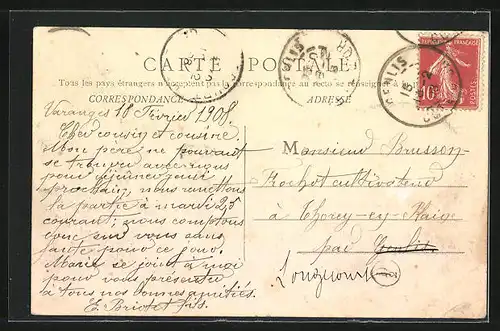 CARTE POSTALE
Tous les pays étrangers n'acceptent pas la correspondance au recto se renseigner
CORRESPONDANCE ADRESSE
Varanges 18 Février 1908
Cher cousin et cousine
Mon père ne pouvant
se trouver avec vous
pour déjeuner jeudi
prochain, nous remettons
la partie à mardi 25
courant; nous comptons
donc sur vous sans
faute pour ce jour.
Marie se joint à moi
pour vous présenter
à tous nos bonnes amitiés.
E. Briotet fils.
Monsieur Brusson-
Rochot cultivateur
à Thorey-en-Plaine
par Genlis
Longecourt
REPUBLIQUE FRANÇAISE
10
POSTES
GENLIS